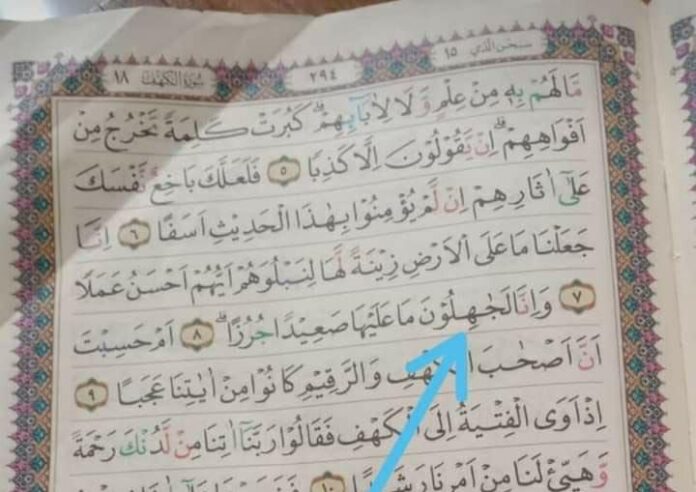 سبحن الذي ١٥ ٢٩٤ سورة الكهف ١٨
مَا لَهُمْ بِهٖ مِنْ عِلْمٍ وَّلَا لِاٰبَآىِٕهِمْۗ كَبُرَتْ كَلِمَةً تَخْرُجُ مِنْ
اَفْوَاهِهِمْۗ اِنْ يَّقُوْلُوْنَ اِلَّا كَذِبًا ٥ فَلَعَلَّكَ بَاخِعٌ نَّفْسَكَ
عَلٰٓى اٰثَارِهِمْ اِنْ لَّمْ يُؤْمِنُوْا بِهٰذَا الْحَدِيْثِ اَسَفًا ٦ اِنَّا
جَعَلْنَا مَا عَلَى الْاَرْضِ زِيْنَةً لَّهَا لِنَبْلُوَهُمْ اَيُّهُمْ اَحْسَنُ عَمَلًا
٧ وَاِنَّا لَجٰهِلُوْنَ مَا عَلَيْهَا صَعِيْدًا جُرُزًاۗ ٨ اَمْ حَسِبْتَ
اَنَّ اَصْحٰبَ وَالرَّقِيْمِ كَانُوْا مِنْ اٰيٰتِنَا عَجَبًا ٩
اِذْ اَوَى الْفِتْيَةُ اِلَى الْكَهْفِ فَقَالُوْا رَبَّنَآ اٰتِنَا مِنْ لَّدُنْكَ رَحْمَةً
وَّهَيِّئْ لَنَا مِنْ اَمْرِنَا ١٠